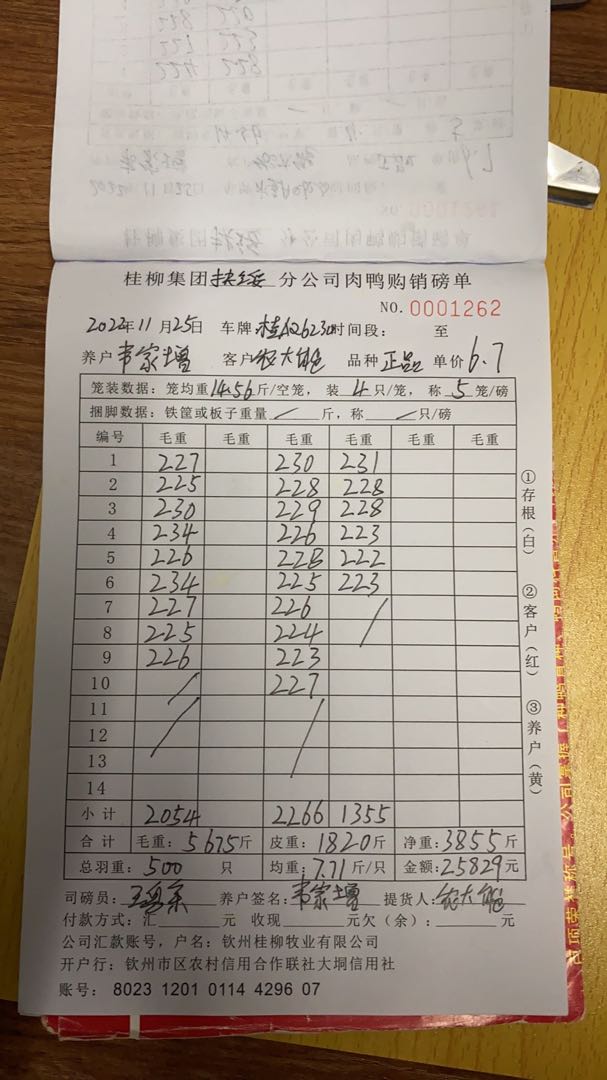 桂柳集团扶绥分公司肉鸭购销磅单
NO.0001262
2022年11月25日 车牌:桂A26230时间段: 至
养户韦家增 客户农大能 品种正品 单价6.7
笼装数据:笼均重14.56斤/空笼,装4只/笼,称5笼/磅
捆脚数据:铁筐或板子重量/斤,称/只/磅
编号 毛重 毛重 毛重 毛重 毛重 毛重
1 227 230 231
2 225 228 228
3 230 229 228
4 234 226 223
5 226 228 222
6 234 225 223
7 227 226 /
8 225 224
9 226 223
10 / 227
11 / /
12
13
14
小计 2054 2266 1355
合计 毛重:5675斤 皮重:1820斤 净重:3855斤
总羽重:500只 均重:7.71斤/只 金额:25829元
司磅员: 养户签名:韦家增 提货人:农大能
付款方式:汇 元 收现 元欠(余): 元
公司汇款账号,户名:钦州桂柳牧业有限公司
开户行:钦州市区农村信用合作联社大垌信用社
账号: 8023 1201 0114 4296 07
①存根(白)
②客户(红)
③养户(黄)